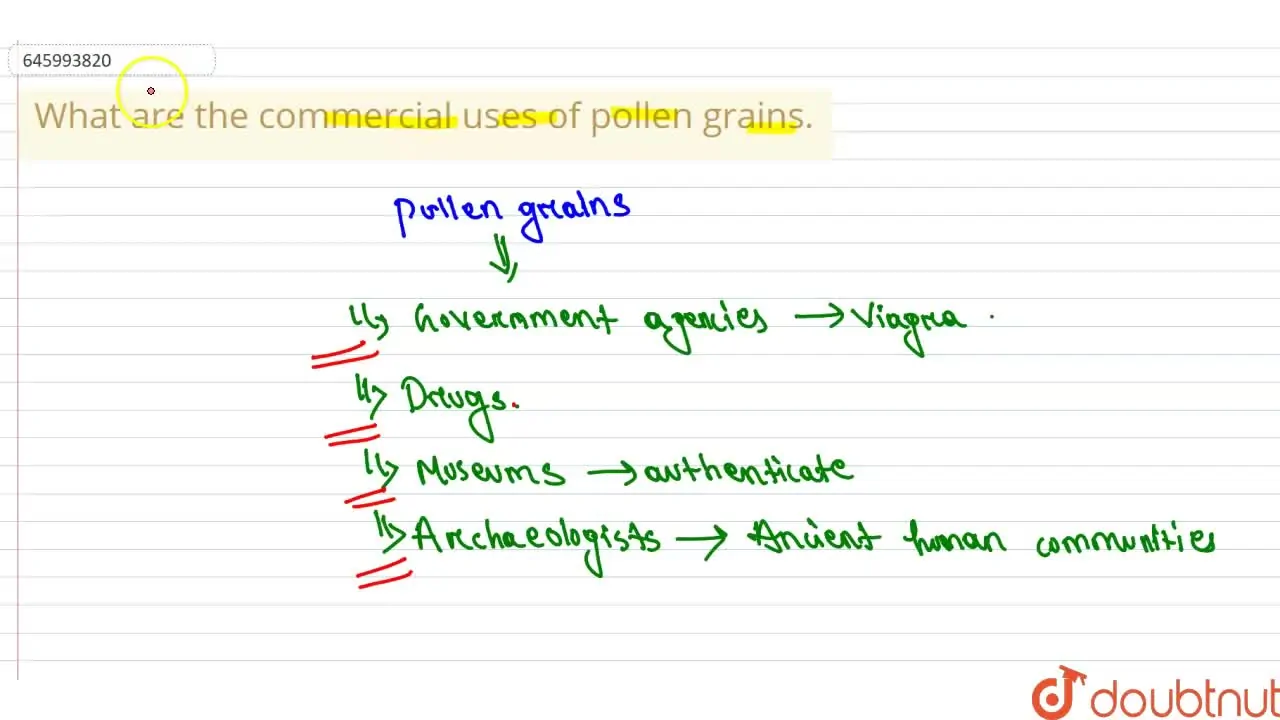 645993820
What are the commercial uses of pollen grains.
Pollen grains
Government agencies → Viagra.
Drugs.
Museums → authenticate
Archaeologists → Ancient human communities
doubtnut